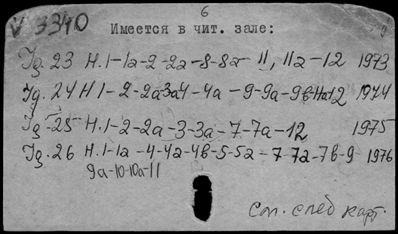 V 3340
6
Имеется в чит. зале:
Jg. 23 H. 1-1a-2-2a-8-8a-11, 11a-12 1973
Jg. 24 H 1-2-2a3a4-4a-9-9a-9b-11a12 1974
Jg. 25 H. 1-2-2a-3-3a-7-7a-12 1975
Jg. 26 H. 1-1a-4-4a-4b-5-5a-7-7a-7b-9 1976
9a-10-10a-11
См. след карт.